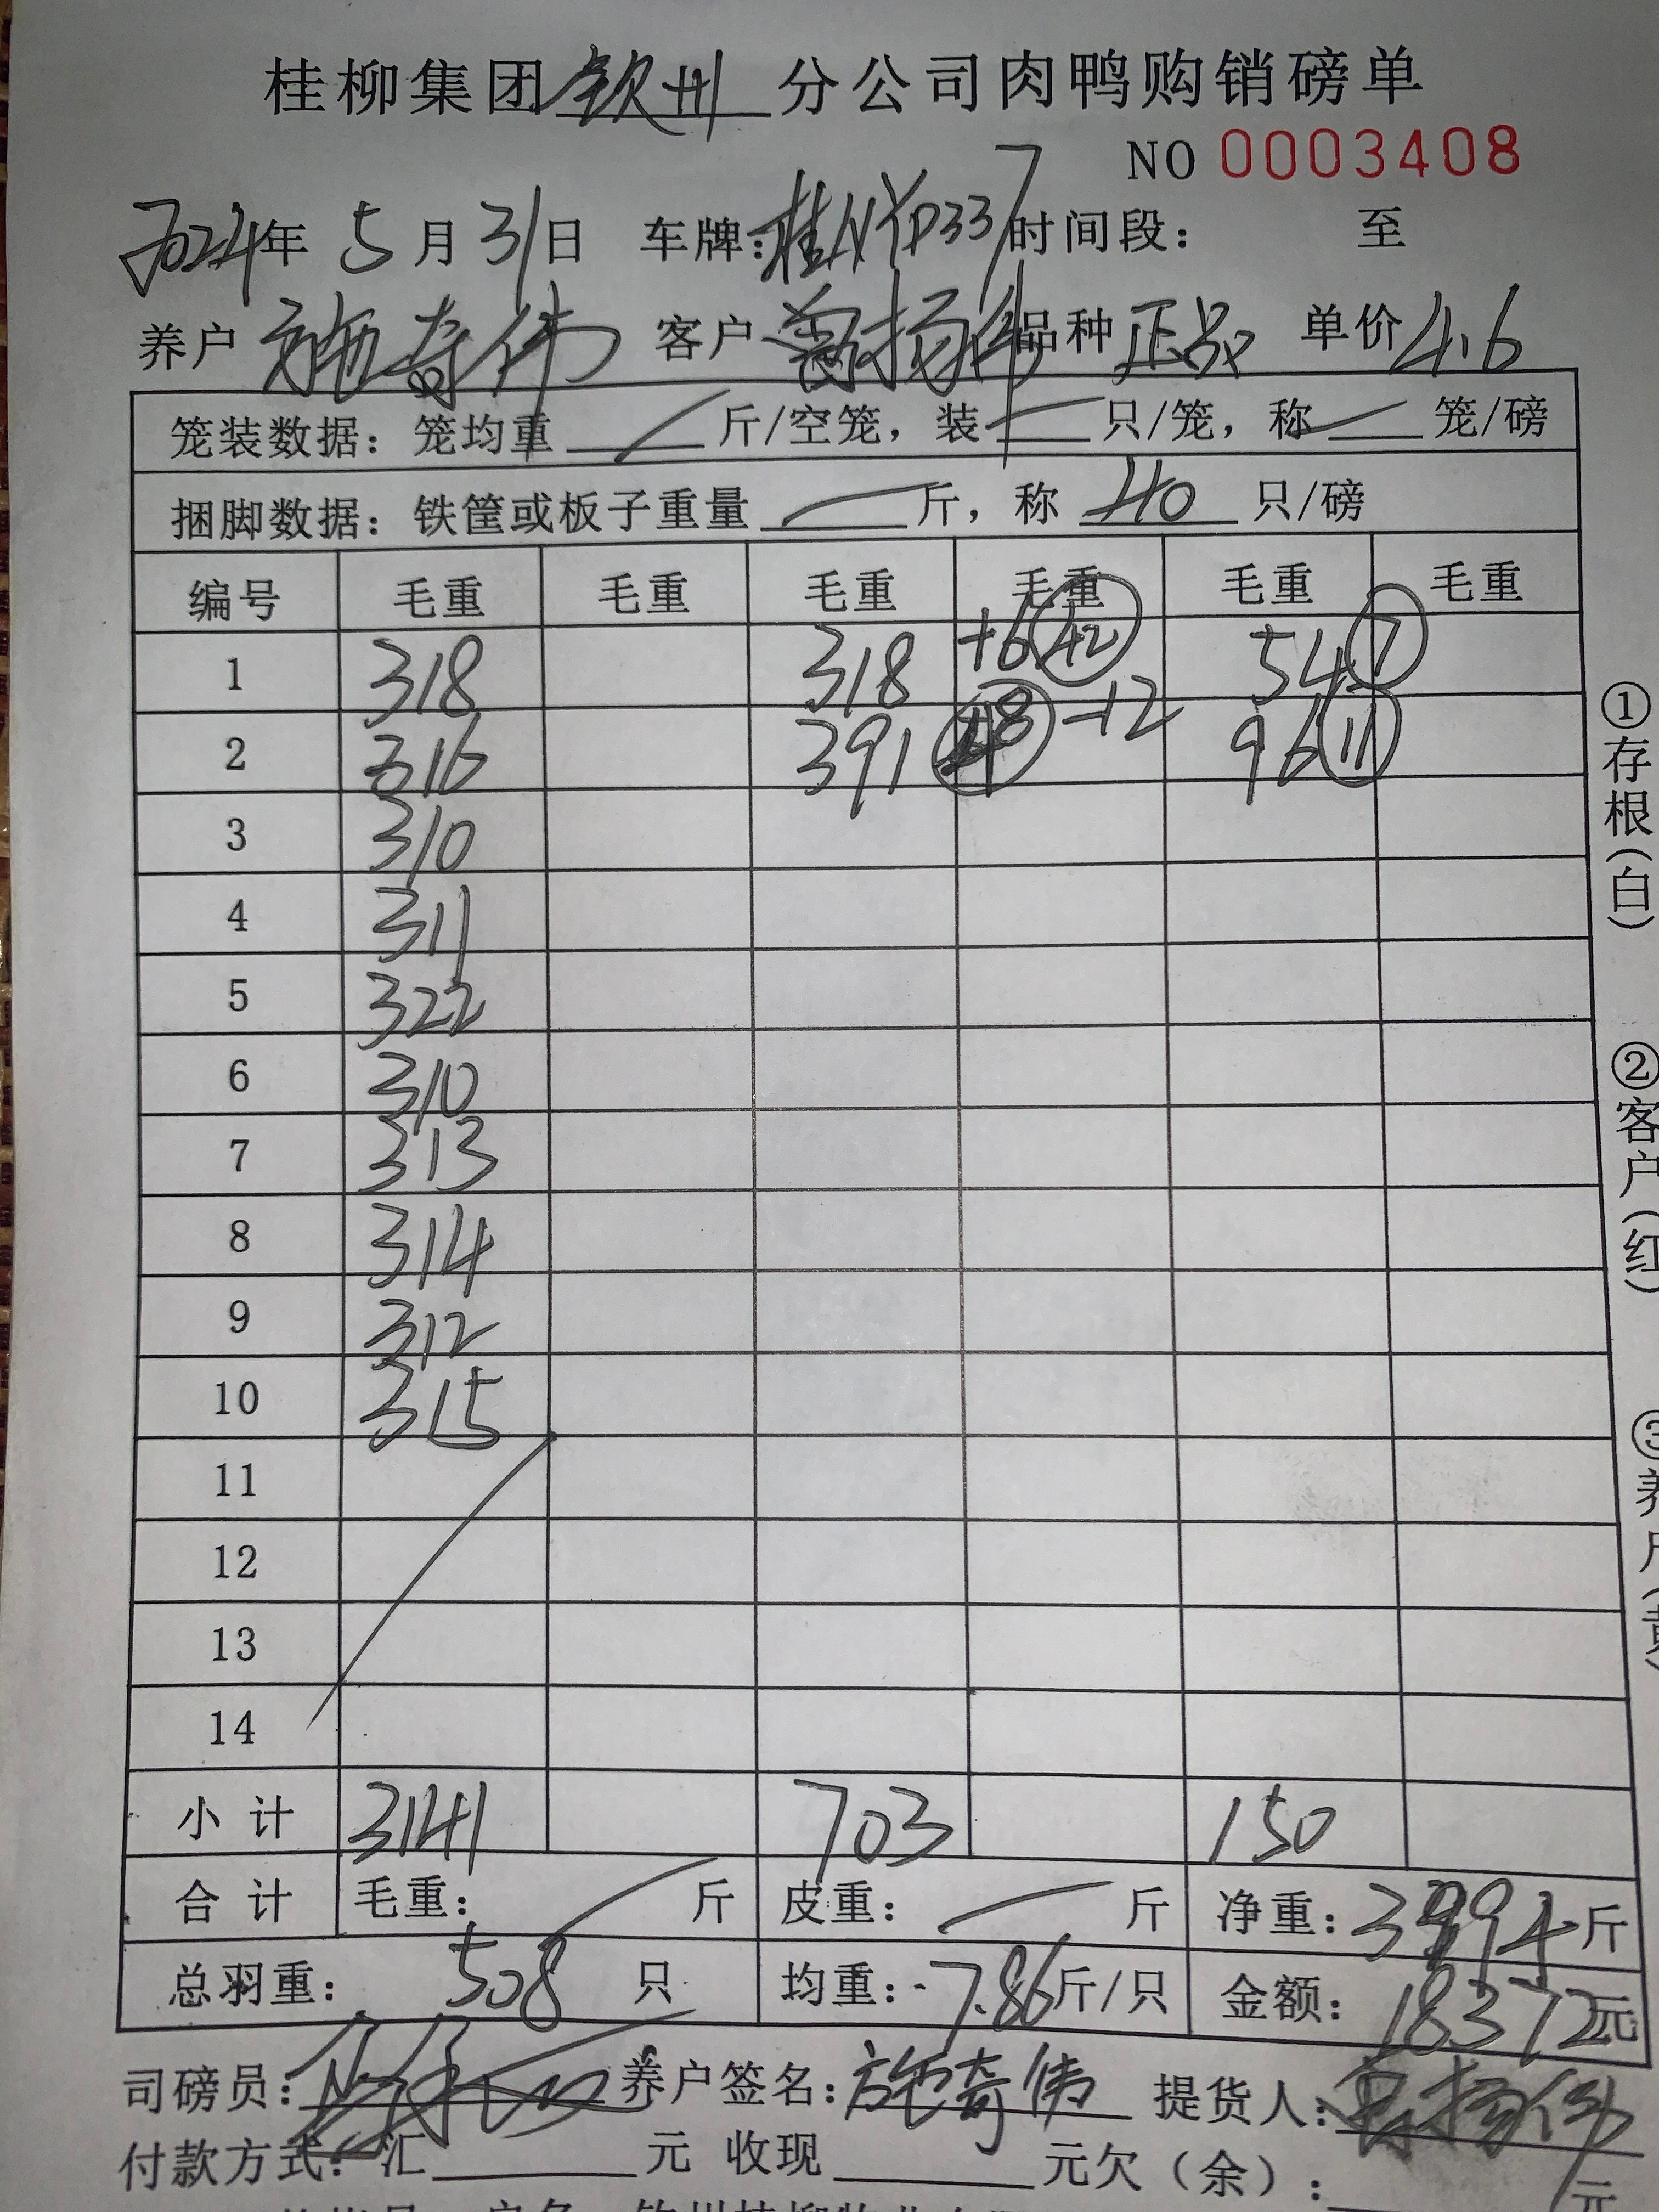 桂柳集团 钦州 分公司肉鸭购销磅单
NO 0003408
2024年 5月 31日 车牌:桂NYP337 时间段: 至
养户 施奇伟 客户 扬伟 品种 正品 单价 4.6
笼装数据: 笼均重 斤/空笼, 装 只/笼, 称 笼/磅
捆脚数据: 铁筐或板子重量 斤, 称 40 只/磅
编号 毛重 毛重 毛重 毛重 毛重 毛重
1 318 318 +6 42 54 7
2 316 391 48 -12 96 11
3 310
4 311
5 322
6 310
7 313
8 314
9 312
10 315
11
12
13
14
小计 3141 703 150
合计 毛重: 斤 皮重: 斤 净重: 3994 斤
总羽重: 508 只 均重: 7.86 斤/只 金额: 18372元
司磅员: 养户签名: 施奇伟 提货人: 扬伟
付款方式: 汇 元 收现 元 欠(余): 元
①存根(白)
②客户(红)
③养户(黄)